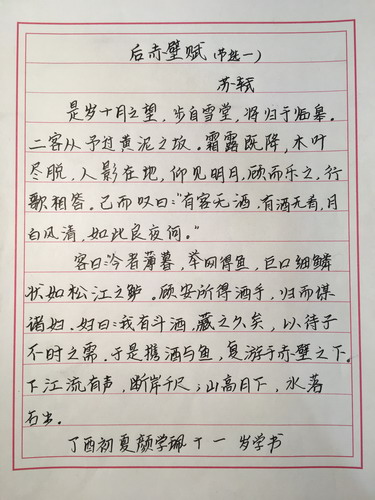 后赤壁赋(节选一)
苏轼
是岁十月之望,步自雪堂,将归于临皋。
二客从予过黄泥之坂。霜露既降,木叶
尽脱,人影在地,仰见明月,顾而乐之,行
歌相答。已而叹曰:“有客无酒,有酒无肴,月
白风清,如此良夜何。”
客曰:今者薄暮,举网得鱼,巨口细鳞
状如松江之鲈。顾安所得酒乎,归而谋
诸妇。妇曰:我有斗酒,藏之久矣,以待子
不时之需。于是携酒与鱼,复游于赤壁之下。
下江流有声,断岸千尺;山高月下,水落
石出。
丁酉初夏颜学珮十一岁学书